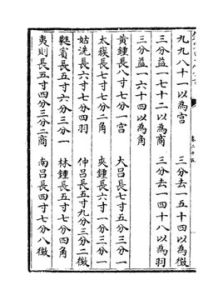 九九八十一以為宫　三分去一五十四以為徵
三分益一七十二以為商　三分去一四十八以為羽
三分益一六十四以為角
黄鍾長八寸七分一宫　大吕長七寸五分三分一
太蔟長七寸七分二角　夾鍾長六寸一分三分一
姑洗長六寸七分四羽　仲吕長五寸九分三分二徵
蕤賓長五寸六分三分一　林鍾長五寸七分四角
夷則長五寸四分三分二商　南吕長四寸七分八徵